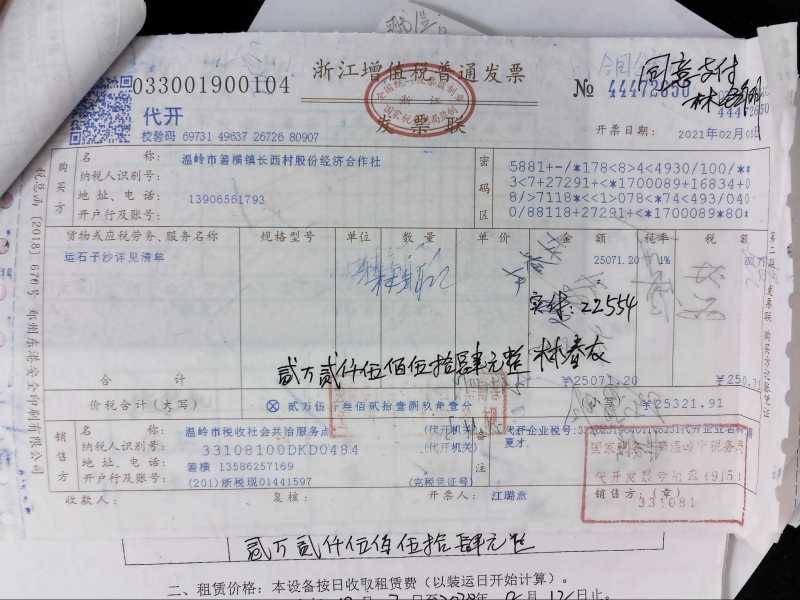 033001900104
浙江增值税普通发票
发票联
№ 44472650
44472650
同意支付
代开
校验码 69731 49637 26726 80907
开票日期: 2021年02月
购买方
名 称: 温岭市箬横镇长西村股份经济合作社
纳税人识别号:
地址、电话: 13906561793
开户行及账号:
密码区
5881+-/*178<8>4<4930/100/**
3<7+27291+<*1700089+16834+0
8/>7118*<<1>078<*74<493/040
0/88118+27291+<*1700089*80*
货物或应税劳务、服务名称 规格型号 单位 数量 单价 金额 税率 税额
运石子沙详见清单 25071.20 1%
实付:22554
贰万贰仟伍佰伍拾肆元整 林春友
合计 ¥25071.20
价税合计(大写) 贰万伍仟叁佰贰拾壹圆玖角壹分 (小写) ¥25321.91
销售方
名 称: 温岭市税收社会共治服务点 (代开机关)
纳税人识别号: 33108100DKD0484 (代开机关)
地址、电话: 箬横 13586257169
开户行及账号: (201)浙税现01441597 (完税凭证号)
备注
代开企业税号:
收款人: 复核: 开票人: 销售方:(章)
331081
第二联:发票联 购买方记账凭证
贰万贰仟伍佰伍拾肆元整
二、租赁价格:本设备按日收取租赁费(以装运日开始计算)。